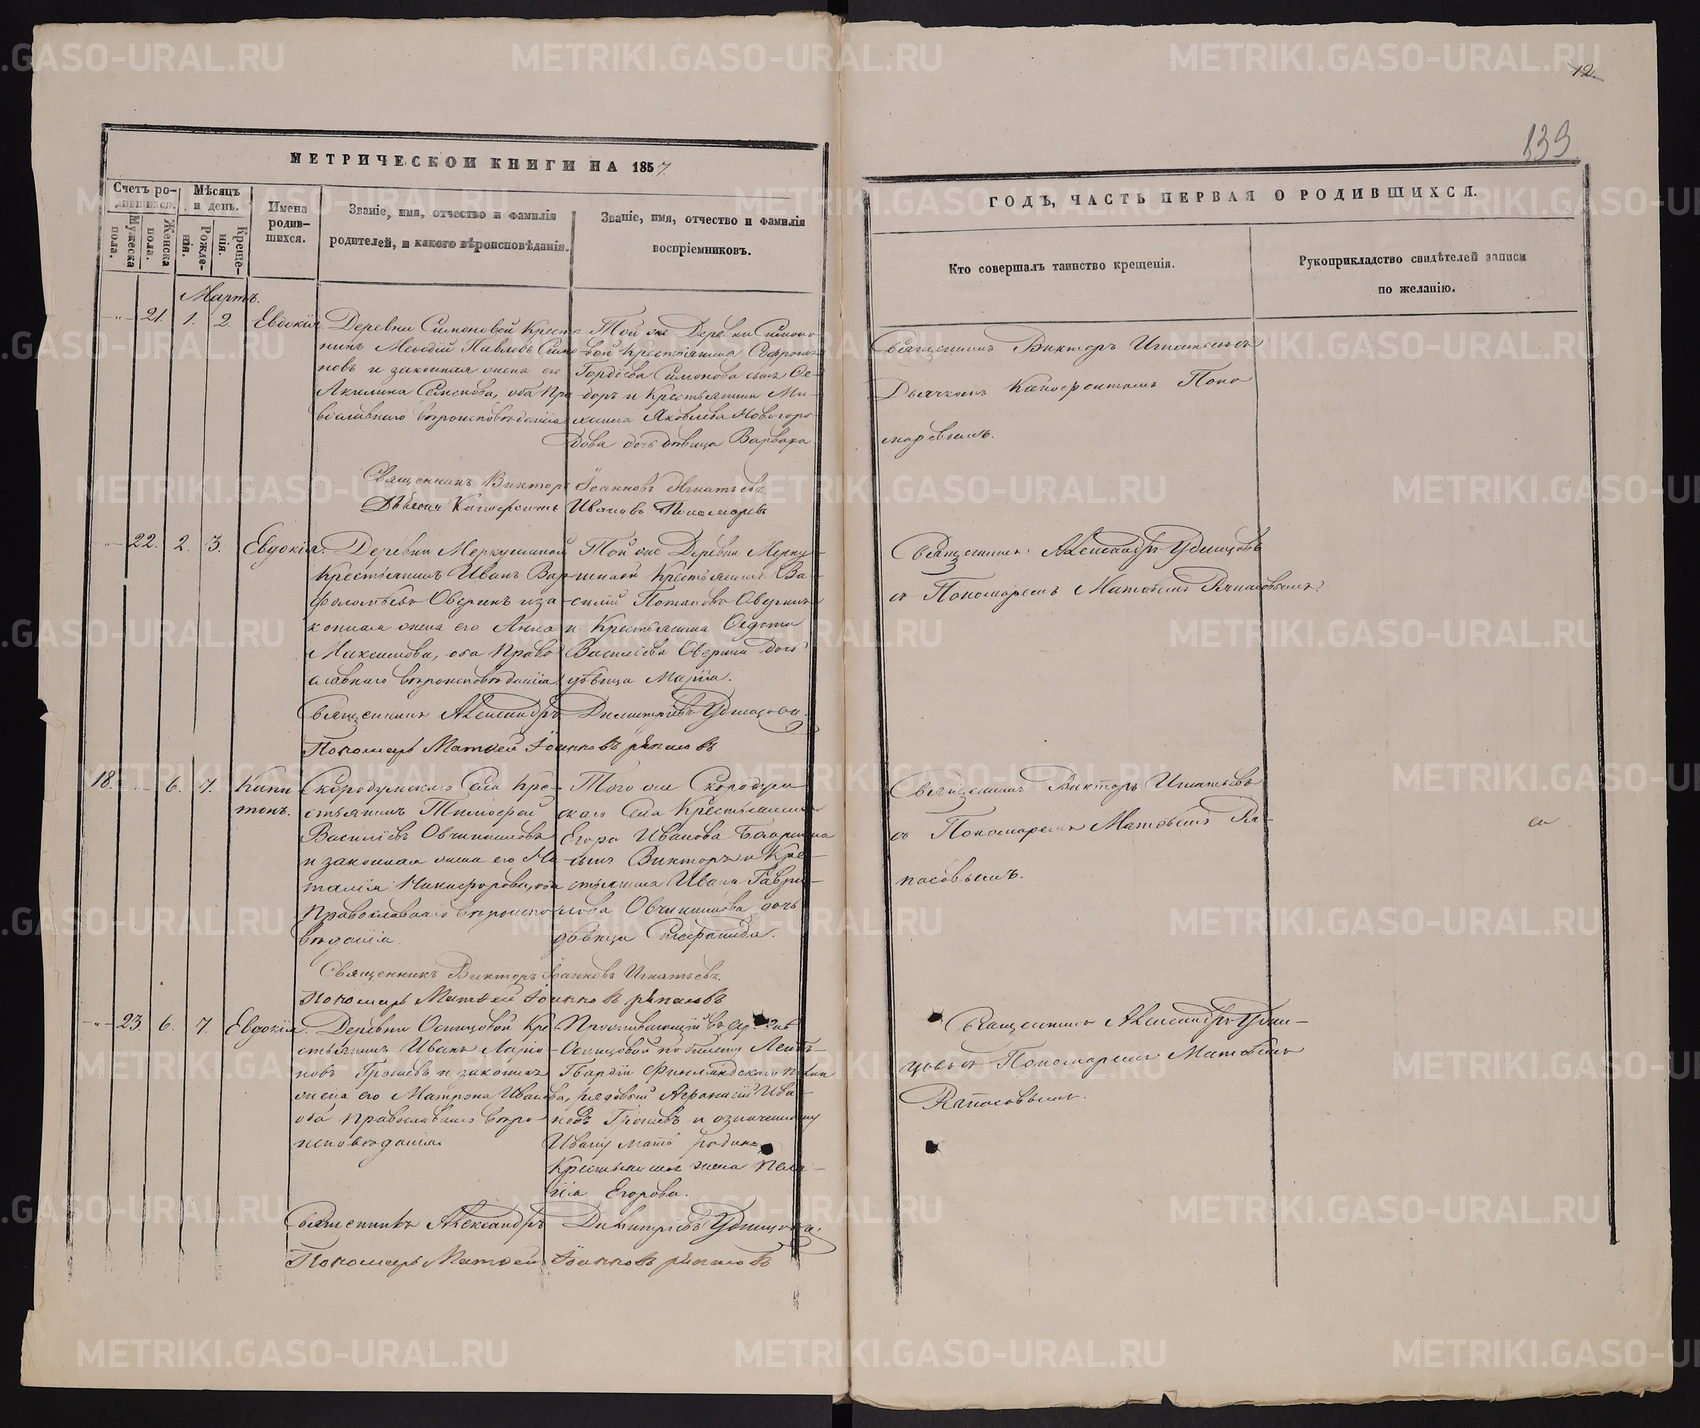 12
139
МЕТРИЧЕСКОЙ КНИГИ НА 1857
Счетъ ро-
дившихся.
Мужеска
пола.
Женска
пола.
Мѣсяцъ
и день.
Рожде-
нія.
Креще-
нія.
Имена
родив-
шихся.
Званіе, имя, отчество и фамилія
родителей, и какого вѣроисповѣданія.
Званіе, имя, отчество и фамилія
воспріемниковъ.
ГОДЪ, ЧАСТЬ ПЕРВАЯ О РОДИВШИХСЯ.
Кто совершалъ таинство крещенія.
Рукоприкладство свидѣтелей записи
по желанію.
Мартъ.
21. 1. 2. Евдокія.
Деревни Симоновой Кресть-
нинъ Меѳодій Павловъ Симо-
новъ и законная жена его
Акилина Семенова, оба Пра-
вославнаго вѣроисповѣданія
Той же Деревни Симоно-
вой Крестьянина Софрона
Гордѣева Симонова сынъ Ѳе-
доръ и Крестьянина Ми-
хаила Яковлева Новогоро-
дова дочь дѣвица Варвара
Священникъ Викторъ Игнатьевъ
Дьячкомъ Поно
маревымъ.
Священникъ Викторъ Іоанновъ Игнатьевъ
Ивановъ Пономаревъ
22. 2. 3. Евдокія.
Деревни Меркушиной
Крестьянинъ Иванъ Вар-
фоломѣевъ Оверинъ и за-
конная жена его Анна
Максимова, оба Право
славнаго вѣроисповѣданія
Той же Деревни Мерку-
шиной Крестьянинъ Ва-
силій Потаповъ Оверинъ
и Крестьянина Ѳедота
Васильева Оверина дочь
дѣвица Марія.
Священникъ Александръ Удинцовъ
съ Пономаремъ Матвѣемъ Рѣпасовымъ.
Священникъ Александръ Димитріевъ Удинцовъ.
Пономарь Матвей Іоанновъ Рѣпасовъ
18. 6. 7. Капи
тонъ.
Скородумскаго Села Кре-
стьянинъ Тимофей
Васильевъ Овчинниковъ
и законная жена его На-
талія Никифорова, оба
Православнаго вѣроиспо-
вѣданія.
Того же Скородум
скаго Села Крестьянина
Егора Иванова
сынъ Викторъ и Кре-
стьянина Ивана Гаври-
лова Овчинникова дочь
дѣвица
Священникъ Викторъ Игнатьевъ
съ Пономаремъ Матвѣемъ Рѣ-
пасовымъ.
Священникъ Викторъ Іоанновъ Игнатьевъ.
Пономарь Матвей Іоанновъ Рѣпасовъ
23 6. 7. Евдокія.
Деревни Осинцовой Кре
стьянинъ Иванъ Ларіо-
новъ Грошевъ и законная
жена его Матрона Иванова,
оба Православнаго вѣро
исповѣданія
Проживающій въ
Осинцовой по билету Лейбъ-
Гвардіи Финляндскаго полка
рядовый Аѳанасій Ива
новъ Грошевъ и означенному
Ивану мать родная
Крестьянская жена Пела-
гія Егорова.
Священникъ Александръ Удин-
цовъ съ Пономаремъ Матвѣемъ
Рѣпасовымъ.
Священникъ Александръ Димитріевъ Удинцовъ.
Пономарь Матвей Іоанновъ Рѣпасовъ
METRIKI.GASO-URAL.RU